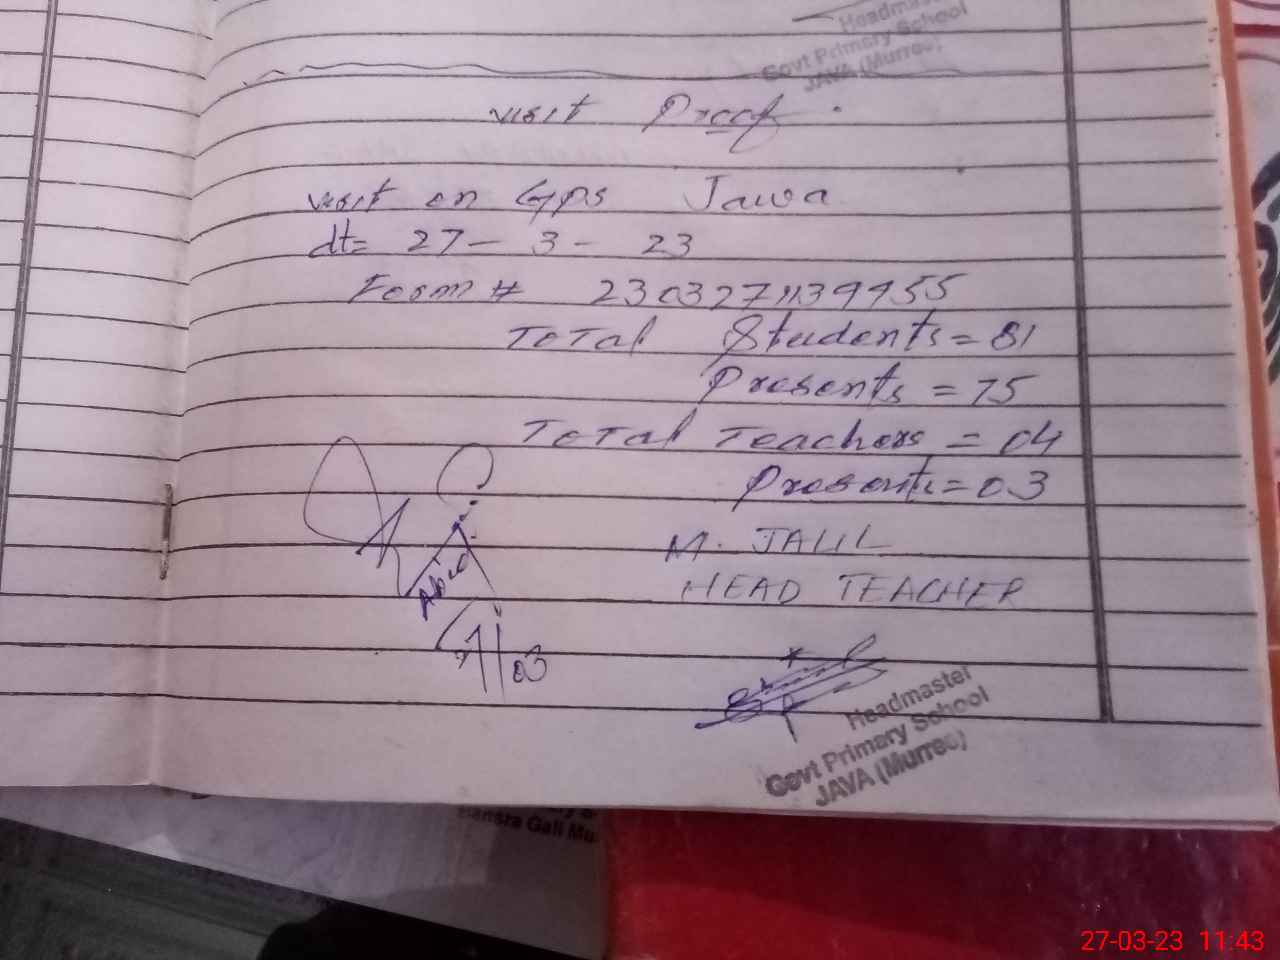 Headmaster
Govt Primary School
JAVA (Murree)
visit Proof.
visit on Gps Jawa
dt= 27-3-23
Form # 2303271139955
Total Students = 81
Presents = 75
Total Teachers = 04
Presents = 03
M. JALIL
HEAD TEACHER
Abid
27/03
Headmaster
Govt Primary School
JAVA (Murree)
Bansra Gali Mu
27-03-23 11:43